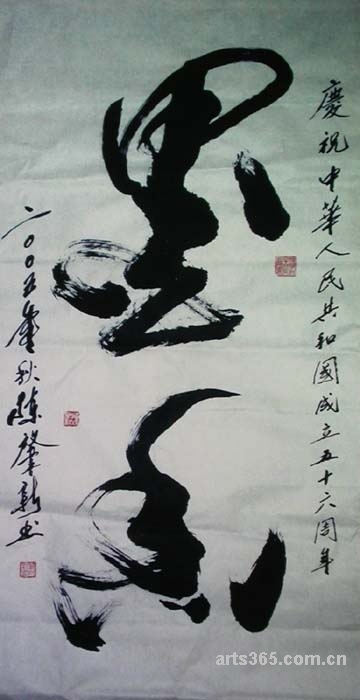 慶祝中華人民共和國成立五十六周年
墨香
二〇〇五年秋陳肇新书
arts365.com.cn